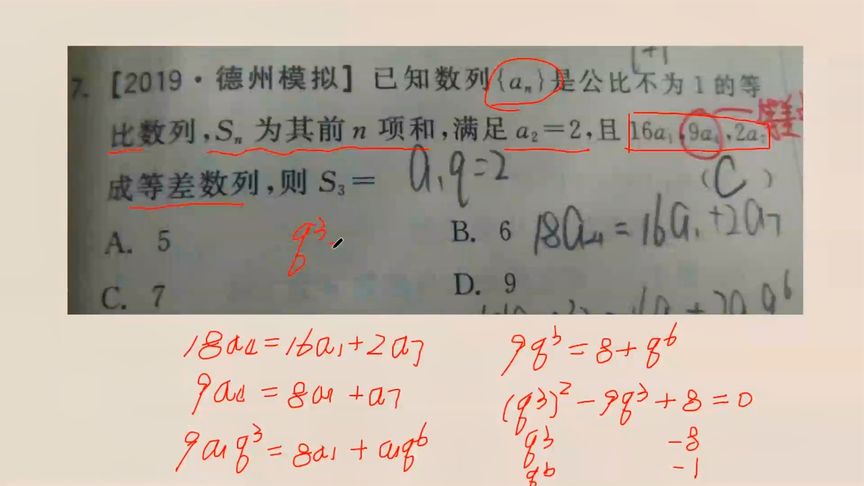 7. [2019·德州模拟] 已知数列{aₙ}是公比不为1的等
比数列,Sₙ为其前n项和,满足a₂=2,且16a₁,9a₄,2a₇
成等差数列,则S₃= (C)
a₁q=2
A. 5
B. 6
18a₄=16a₁+2a₇
C. 7
D. 9
q³
18a₄=16a₁+2a₇
9a₄=8a₁+a₇
9a₁q³=8a₁+a₁q⁶
9q³=8+q⁶
(q³)²-9q³+8=0
q³ -8
q³ -1